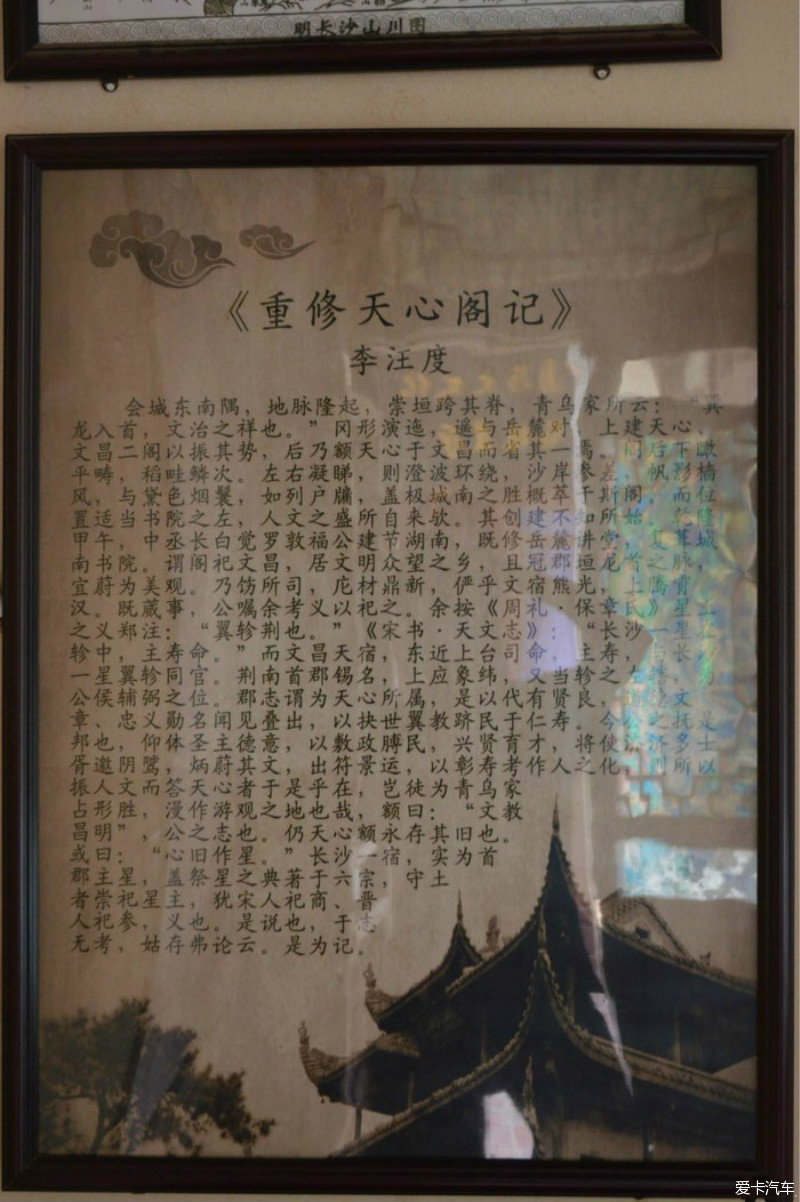 明长沙山川图
《重修天心阁记》
李汪度
会城东南隅，地脉隆起，崇垣跨其脊，青乌家所云：“巽
龙入首，文治之祥也。”冈形演迤，遥与岳麓对，上建天心、
文昌二阁以振其势，后乃额天心于文昌而省其一焉。阁后下瞰
平畴，稻畦鳞次。左右凝睇，则澄波环绕，沙岸参差，帆影樯
风，与黛色烟鬟，如列户牖，盖极城南之胜概萃于斯阁。而位
置适当书院之左，人文之盛所自来欤。其创建不知所始。乾隆
甲午，中丞长白觉罗敦福公建节湖南，既修岳麓讲堂，复葺城
南书院。谓阁祀文昌，居文明众望之乡，且冠郡垣龙首之脉，
宜蔚为美观。乃饬所司，庀材鼎新，俨乎文宿熊光，上腾霄
汉。既蒇事，公嘱余考义以祀之。余按《周礼·保章氏》星土
之义郑注：“翼轸荆也。”《宋书·天文志》：“长沙一星在
轸中，主寿命。”而文昌天宿，东近上台司命，主寿，
一星翼轸同官。荆南首郡锡名，上应象纬，又当轸之左
公侯辅弼之位。郡志谓为天心所属，是以代有贤良，文
章、忠义勋名闻见叠出，以抉世翼教跻民于仁寿。今公之抚是
邦也，仰体圣主德意，以敷政膊民，兴贤育才，将使济济多士
胥邀阴骘，炳蔚其文，出符景运，以彰寿考作人之化，则所以
振人文而答天心者于是乎在，岂徒为青乌家
占形胜，漫作游观之地也哉，额曰：“文教
昌明”，公之志也。仍天心额永存其旧也。
或曰：“心旧作星。”长沙一宿，实为首
郡主星，盖祭星之典著于六宗，守土
者崇祀星主，犹宋人祀商、晋
人祀参，义也。是说也，于志
无考，姑存弗论云。是为记。
爱卡汽车